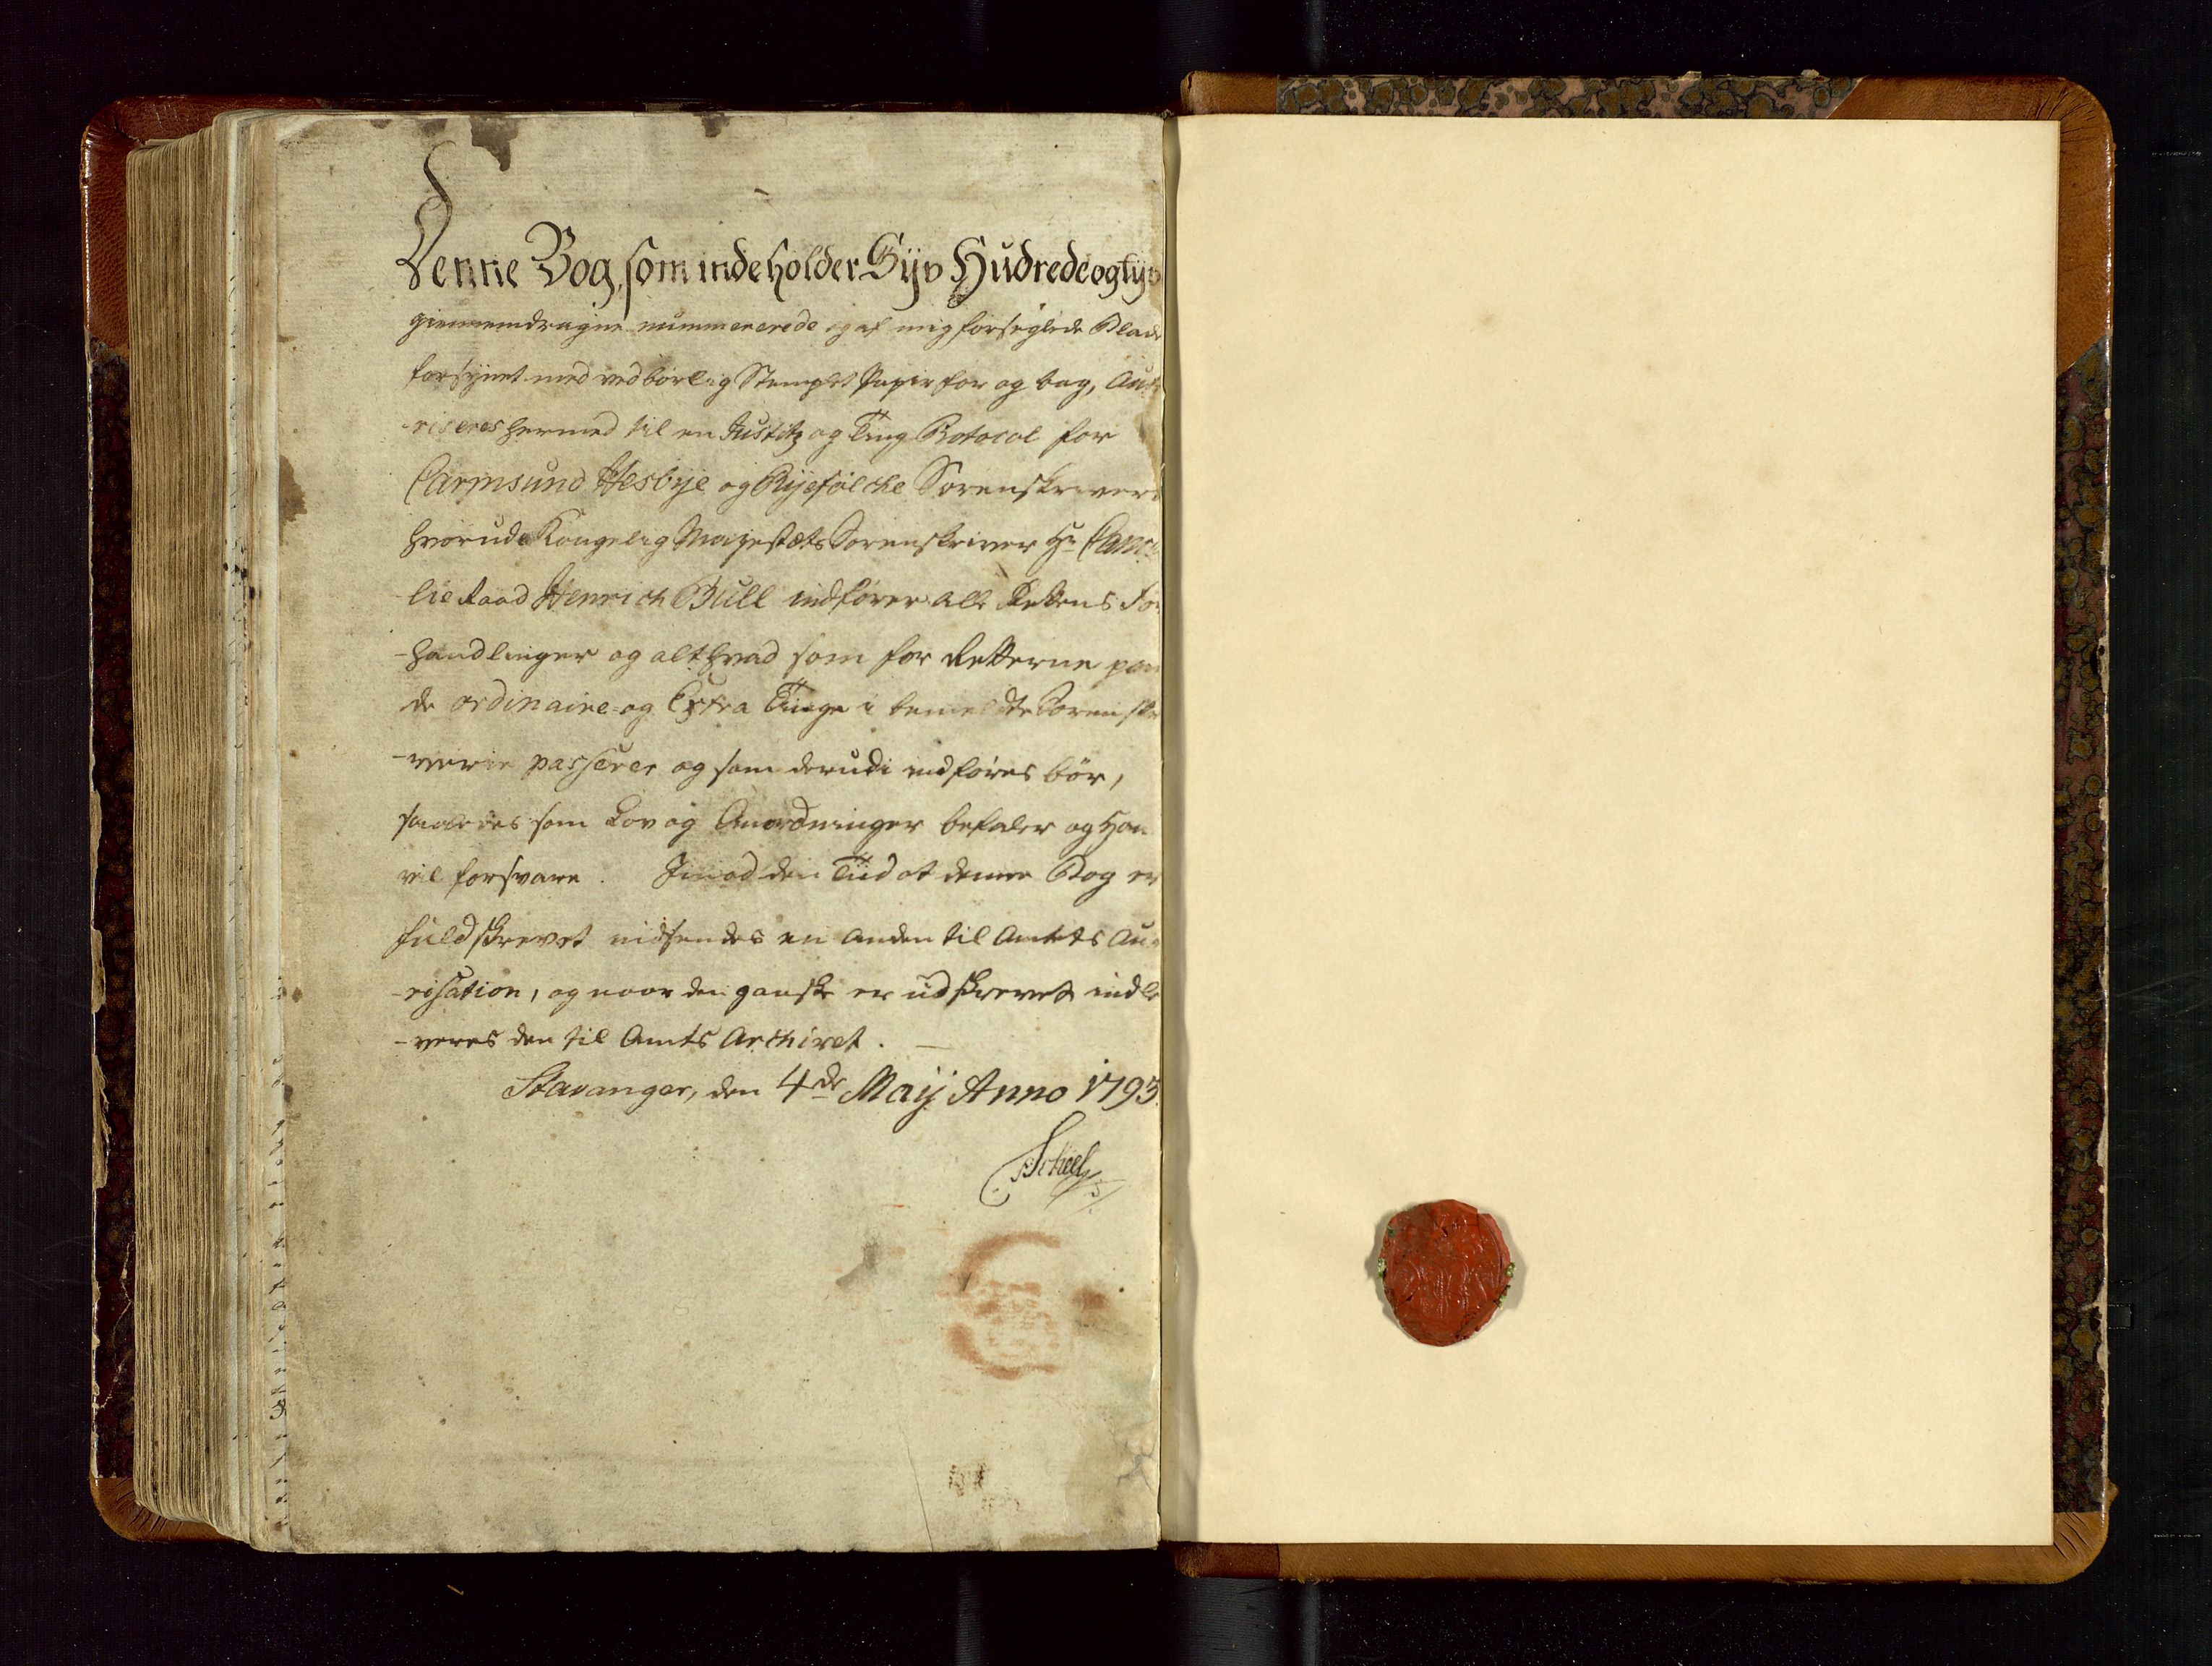 Denne Bog, som indeholder Syv Hudrede og tyv
giennemdragne nummererede og af mig forseglede Blade
forsynet med vedbørlig Stemplet Papir for og bag, Aut
-riseres hermed til en Justitz og Ting Protocol for
Carmsund Hesbye og Ryefølche Sorenskriveri
hvorudi Kongelig Mayestæts Sorenskriver Hr Cance
-lie Raad Henrich Bull indfører alle Rettens For
-handlinger og alt hvad som for Retterne paa
de ordinaire og Extra Tinge i bemeldte Sorenskri
-verie passerer og som derudi indføres bør,
saaledes som Lov og Anordninger befaler og Han
vil forsvare. Imod den Tiid at denne Bog er
fuldskrevet indsendes en anden til Amtets Au
-risation, og naar den ganske er udskrevet indle
-veres den til Amts Archivet.
Stavanger, den 4de Maij Anno 1793.
Scheel